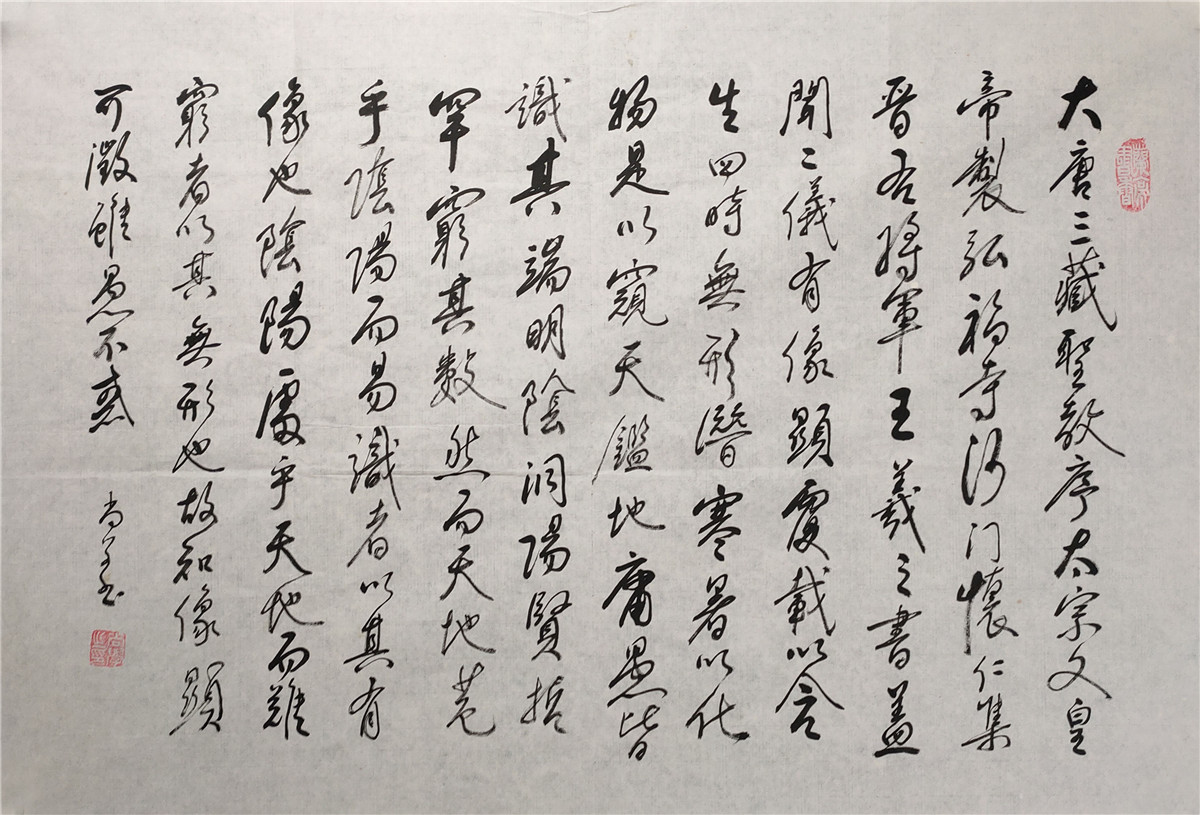 大唐三藏聖教序太宗文皇
帝製弘福寺沙门懷仁集
晉右將軍王羲之書蓋
聞二儀有像顯覆載以含
生四時無形潛寒暑以化
物是以窺天鑑地庸愚皆
識其端明陰洞陽賢哲
罕窮其數然而天地苞
乎陰陽而易識者以其有
像也陰陽處乎天地而難
窮者以其無形也故知像顯
可徵雖愚不惑